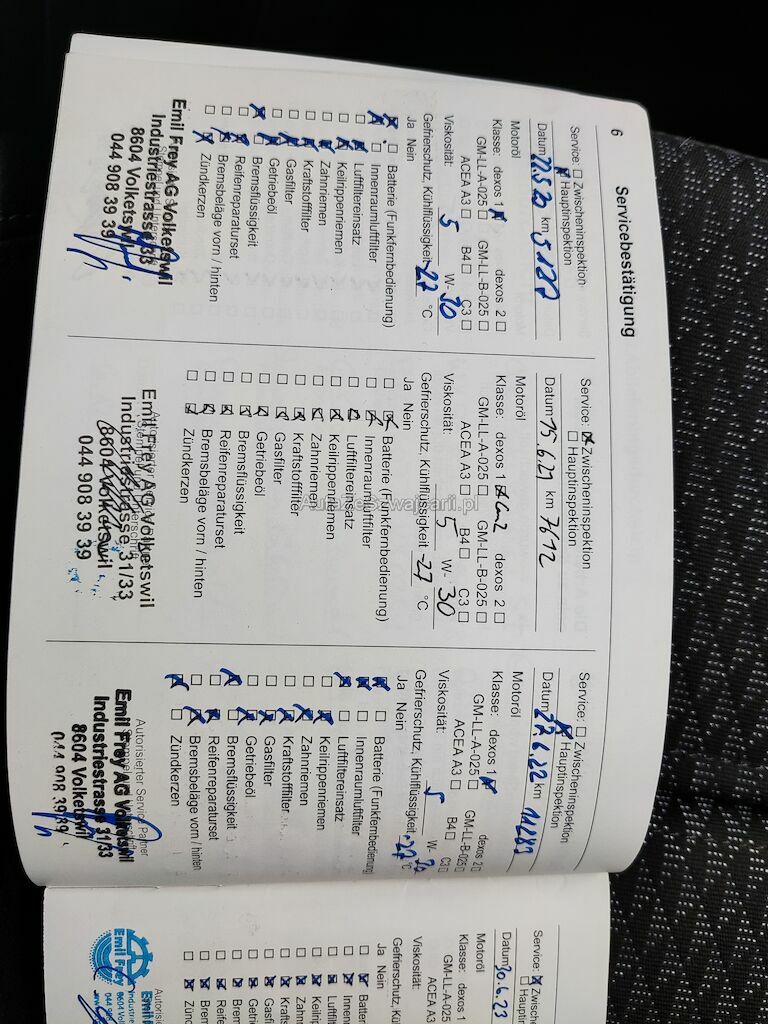 6
Servicebestätigung
Service: ☐ Zwischeninspektion
☒ Hauptinspektion
Datum 22.5.20 km 5187
Motoröl
Klasse: dexos 1 ☒ dexos 2 ☐
GM-LL-A-025 ☐ GM-LL-B-025 ☐
ACEA A3 ☐ B4 ☐ C3 ☐
Viskosität: 5 W- 30
Gefrierschutz, Kühlflüssigkeit -27 °C
Ja Nein
☒ ☐ Batterie (Funkfernbedienung)
☒ ☐ Innenraumluftfilter
☐ ☒ Luftfiltereinsatz
☐ ☒ Keilrippenriemen
☐ ☒ Zahnriemen
☐ ☒ Kraftstofffilter
☐ ☒ Gasfilter
☐ ☒ Getriebeöl
☒ ☐ Bremsflüssigkeit
☐ ☒ Reifenreparaturset
☐ ☒ Bremsbeläge vorn / hinten
☐ ☒ Zündkerzen
Emil Frey AG Volketswil
Industriestrasse 31/33
8604 Volketswil
044 908 39 39
Service: ☒ Zwischeninspektion
☐ Hauptinspektion
Datum 15.6.21 km 7612
Motoröl
Klasse: dexos 1 ☒ Gen2 dexos 2 ☐
GM-LL-A-025 ☐ GM-LL-B-025 ☐
ACEA A3 ☐ B4 ☐ C3 ☐
Viskosität: 5 W- 30
Gefrierschutz, Kühlflüssigkeit -27 °C
Ja Nein
☐ ☒ Batterie (Funkfernbedienung)
☐ ☒ Innenraumluftfilter
☐ ☒ Luftfiltereinsatz
☐ ☒ Keilrippenriemen
☐ ☒ Zahnriemen
☐ ☒ Kraftstofffilter
☐ ☒ Gasfilter
☐ ☒ Getriebeöl
☐ ☒ Bremsflüssigkeit
☐ ☒ Reifenreparaturset
☐ ☒ Bremsbeläge vorn / hinten
☐ ☒ Zündkerzen
Emil Frey AG Volketswil
Industriestrasse 31/33
8604 Volketswil
044 908 39 39
Service: ☐ Zwischeninspektion
☒ Hauptinspektion
Datum 27.6.22 km 11282
Motoröl
Klasse: dexos 1 ☒ dexos 2 ☐
GM-LL-A-025 ☐ GM-LL-B-025 ☐
ACEA A3 ☐ B4 ☐ C3 ☐
Viskosität: 5 W- 30
Gefrierschutz, Kühlflüssigkeit -27 °C
Ja Nein
☒ ☐ Batterie (Funkfernbedienung)
☒ ☐ Innenraumluftfilter
☒ ☐ Luftfiltereinsatz
☐ ☒ Keilrippenriemen
☐ ☒ Zahnriemen
☐ ☒ Kraftstofffilter
☐ ☒ Gasfilter
☐ ☒ Getriebeöl
☒ ☐ Bremsflüssigkeit
☐ ☒ Reifenreparaturset
☐ ☒ Bremsbeläge vorn / hinten
☒ ☐ Zündkerzen
Autorisierter Service Partner
Emil Frey AG Volketswil
Industriestrasse 31/33
8604 Volketswil
044 908 39 39
Service: ☒ Zwische
☐ Hauptins
Datum 30.6.23
Motoröl
Klasse: dexos 1
GM-LL-A-02
ACEA A3
Viskosität:
Gefrierschutz, Kühlflü
Ja Nein
☐ ☒ Batter
☐ ☒ Innen
☐ ☒ Luftfil
☐ ☒ Keilri
☐ ☒ Zahn
☐ ☒ Kraft
☐ ☒ Gasfi
☐ ☒ Getri
☐ ☒ Brem
☐ ☒ Reife
☐ ☒ Brem
☐ ☒ Zünd
Autorisi
Emil Frey
Industrie
8604 Vol